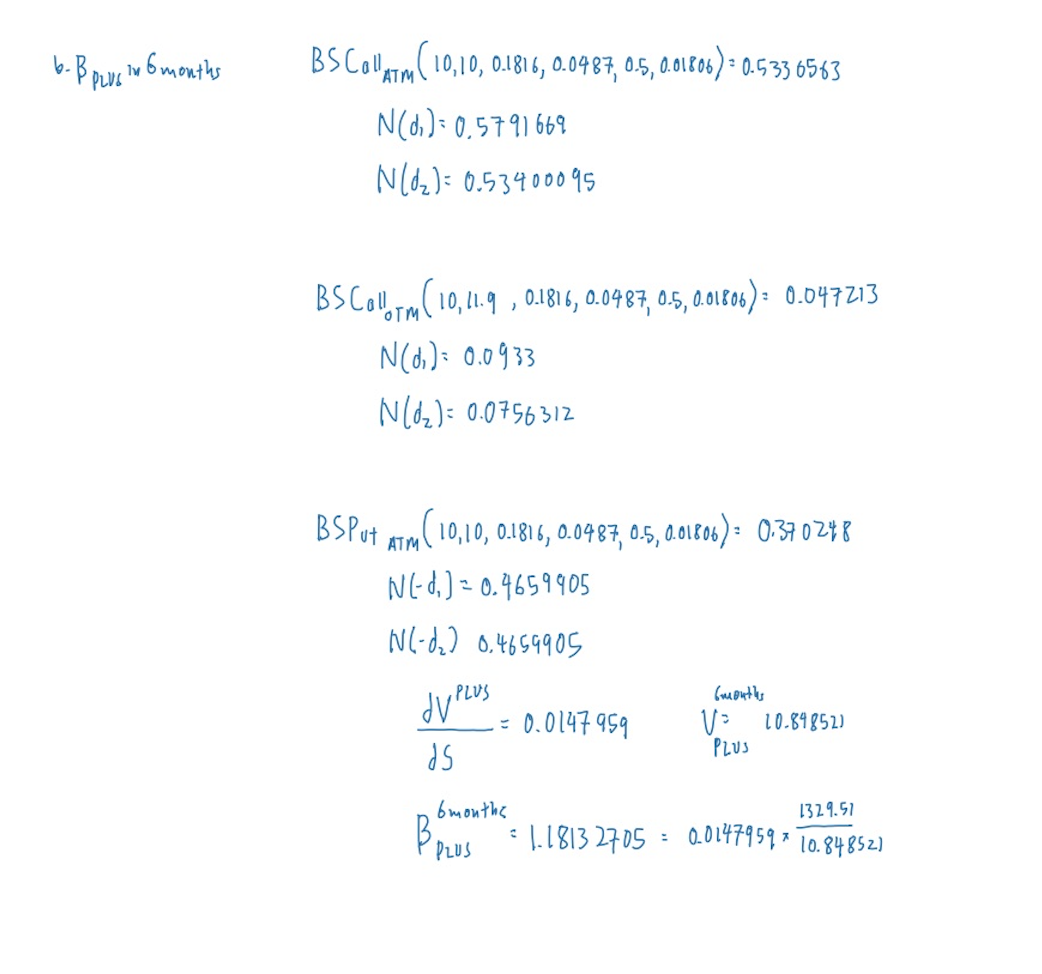 b. β PLUS in 6 months
BSCall ATM (10,10, 0.1816, 0.0487, 0.5, 0.01806) = 0.5336563
N(d₁) = 0.5791669
N(d₂) = 0.53400095
BSCall OTM (10, 11.9 , 0.1816, 0.0487, 0.5, 0.01806) = 0.047213
N(d₁) = 0.0933
N(d₂) = 0.0756312
BSPut ATM (10,10, 0.1816, 0.0487, 0.5, 0.01806) = 0.370248
N(-d₁) = 0.4659905
N(-d₂) 0.4659905
dV PLUS / dS = 0.0147959
V 6months PLUS = 10.848521
β 6months PLUS = 1.18132705 = 0.0147959 × 1329.51 / 10.848521